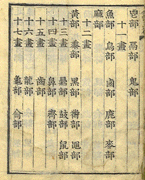 鬯部 鬲部 鬼部
十一畫
魚部 鳥部 鹵部 鹿部 麥部
麻部
十二畫
黃部 黍部 黑部 黹部
十三畫 黽部 鼎部 鼓部 鼠部
十四畫 鼻部 齊部
十五畫 齒部
十六畫 龍部 龜部
十七畫 龠部